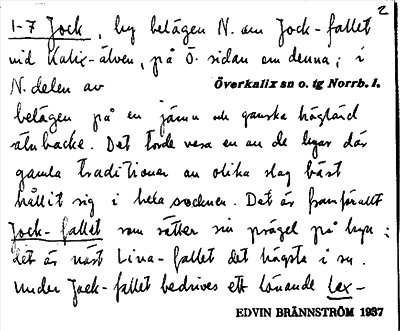 2
1-7 Jock, by belägen N. om Jock-fallet
vid Kalix-älven, på Ö. sidan om denna; i
N. delen av
Överkalix sn o. tg Norrb. l.
belägen på en jämn och ganska högländ
älvbacke. Det torde vara en av de byar där
gamla traditioner av olika slag bäst
hållit sig i hela socknen. Det är framförallt
Jock-fallet som sätter sin prägel på byn;
det är näst Lina-fallet det högsta i sn.
Under Jock-fallet bedrives ett lönande lax-
EDVIN BRÄNNSTRÖM 1937